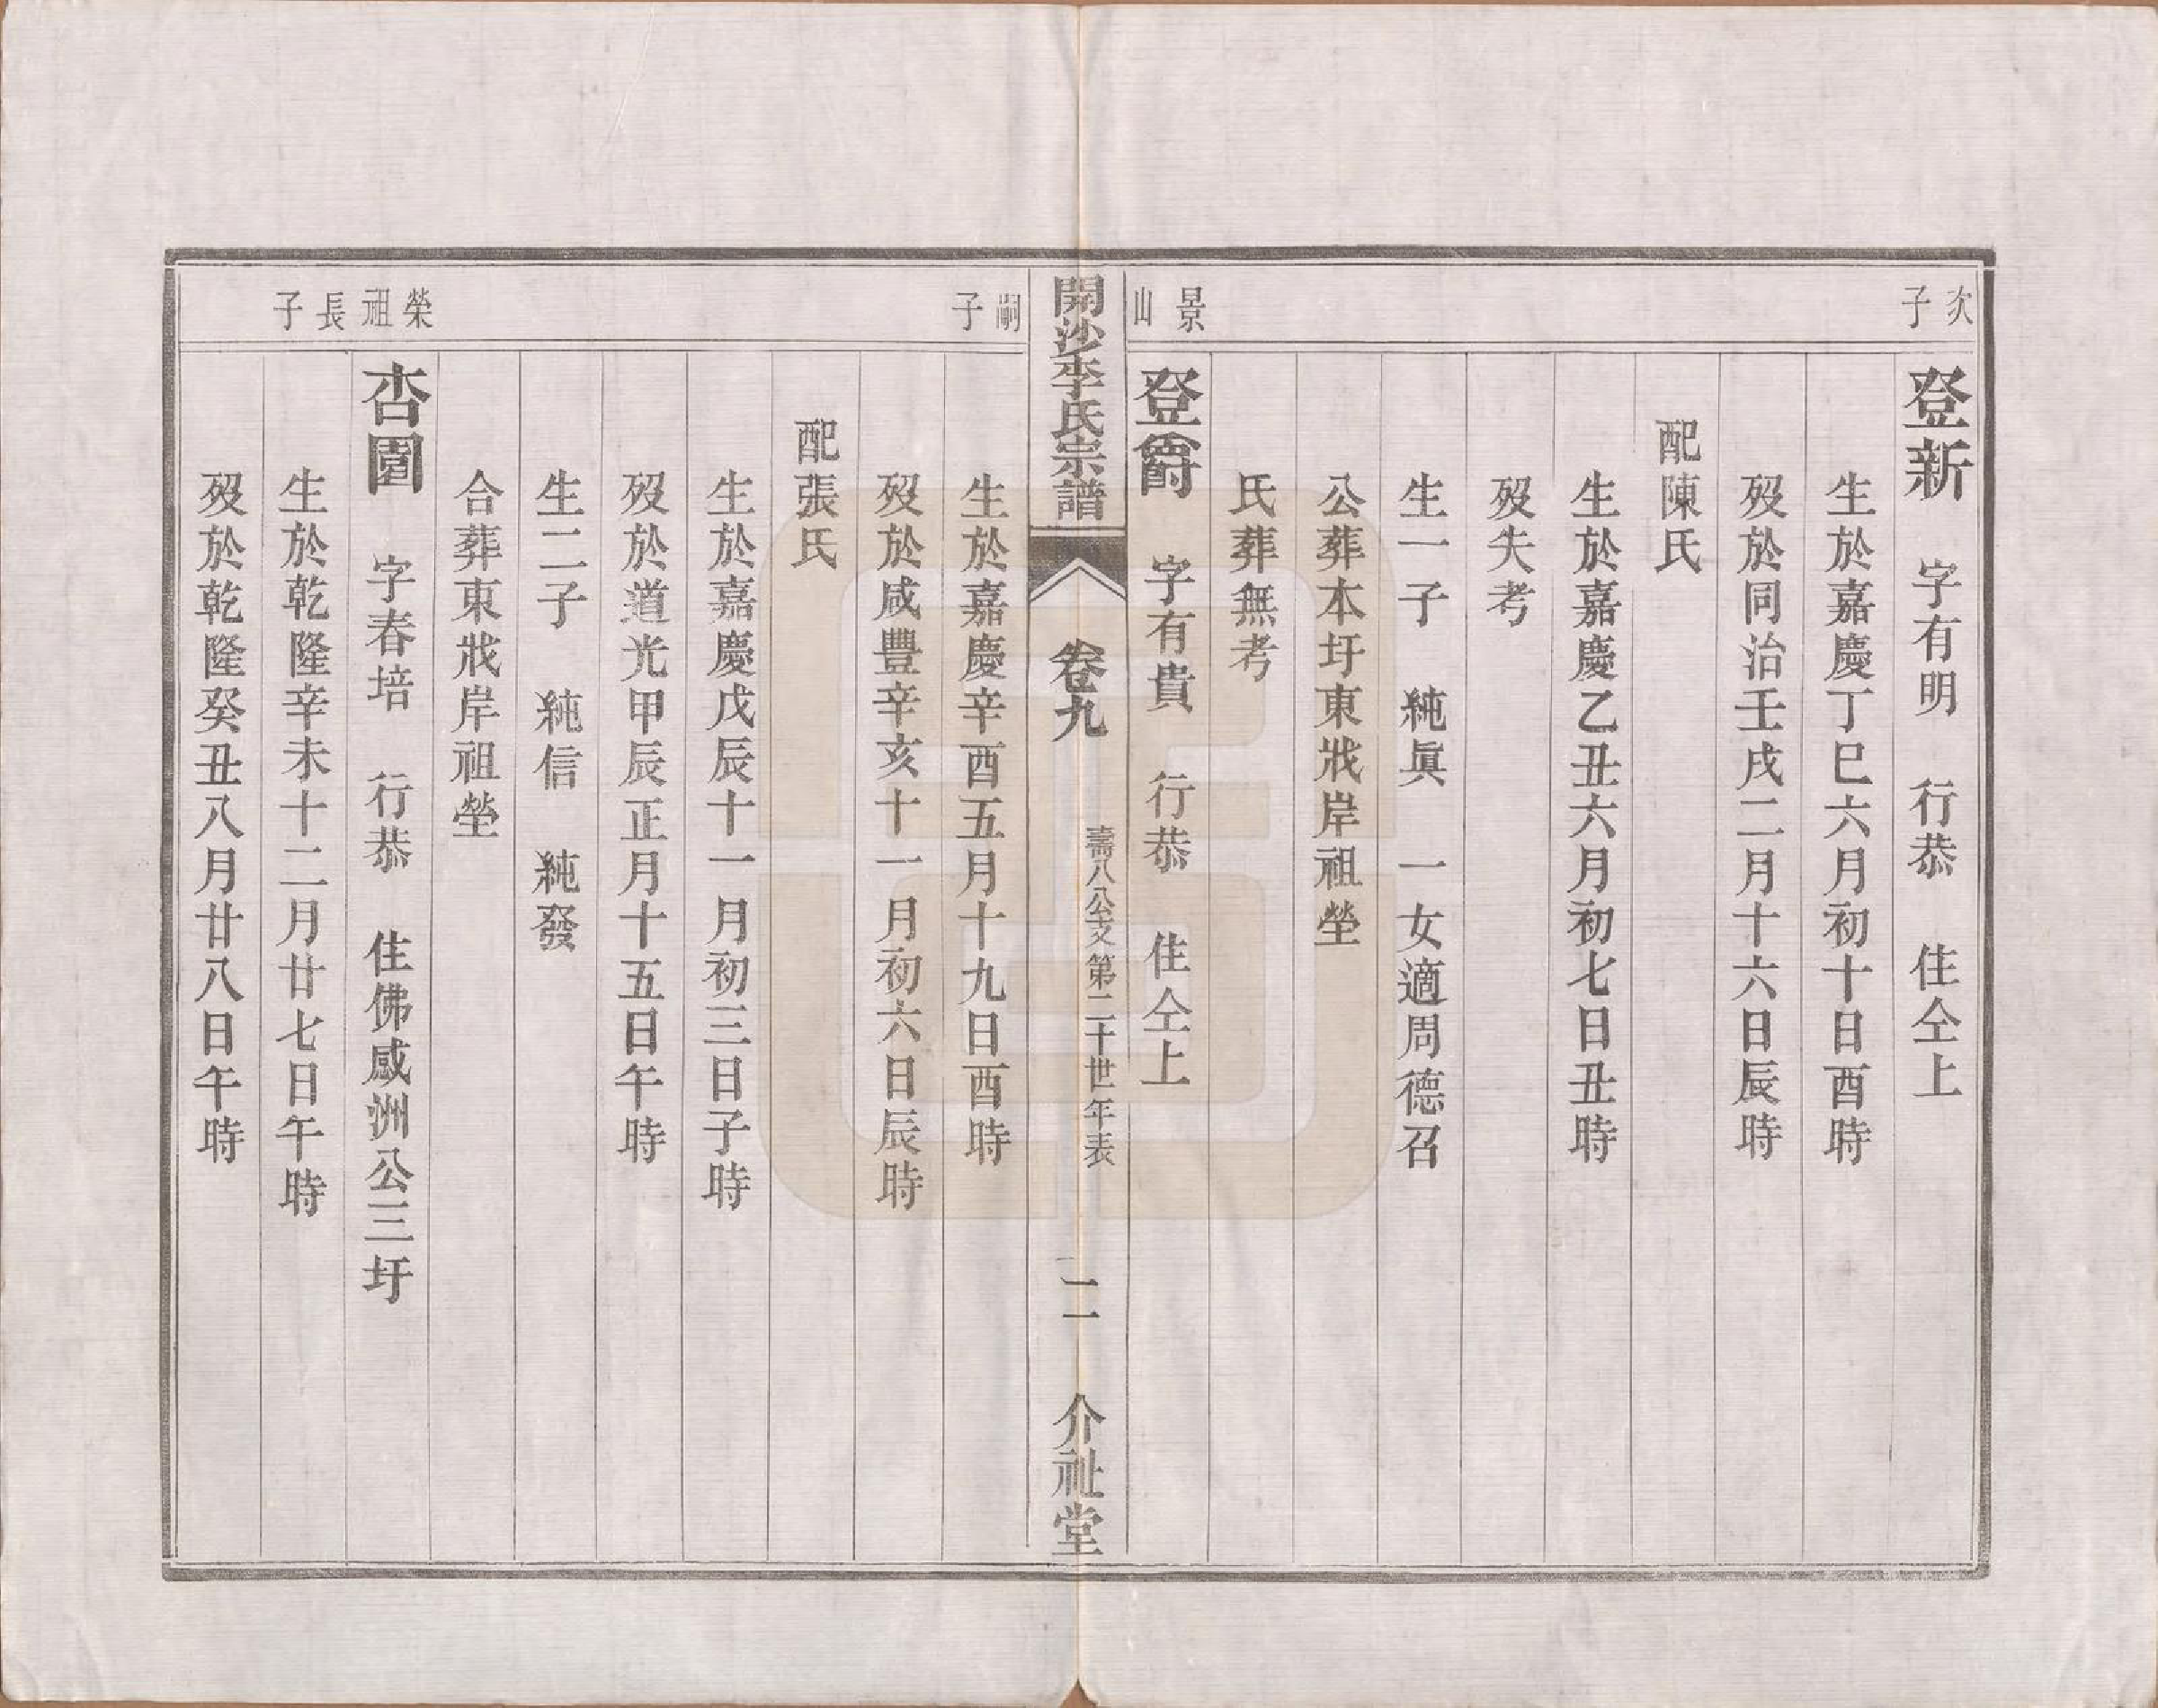 次子
登新　字有明　行恭　住仝上
生於嘉慶丁巳六月初十日酉時
歿於同治壬戌二月十六日辰時
配陳氏
生於嘉慶乙丑六月初七日丑時
歿失考
生一子　純眞　一女適周德召
公葬本圩東戕岸祖塋
氏葬無考
景山
登爵　字有貴　行恭　住仝上
開沙李氏宗譜　卷九　壽八公支第二十世年表　二一　介祉堂
嗣子
生於嘉慶辛酉五月十九日酉時
歿於咸豐辛亥十一月初六日辰時
配張氏
生於嘉慶戊辰十一月初三日子時
歿於道光甲辰正月十五日午時
生二子　純信　純發
合葬東戕岸祖塋
榮祖長子
杏園　字春培　行恭　住佛感洲公三圩
生於乾隆辛未十二月廿七日午時
歿於乾隆癸丑八月廿八日午時